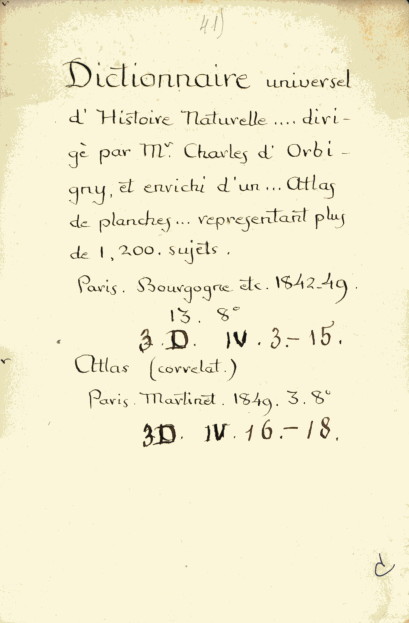 41)
Dictionnaire universel
d' Histoire Naturelle .... diri-
gè par Mr. Charles d' Orbi-
gny, et enrichi d'un ... Atlas
de planches ... representant plus
de 1,200. sujets.
Paris. Bourgogne etc. 1842-49.
13. 8°
3. D. IV. 3.-15.
Atlas (correlat.)
Paris. Martinet. 1849. 3. 8°
3D. IV. 16.-18.